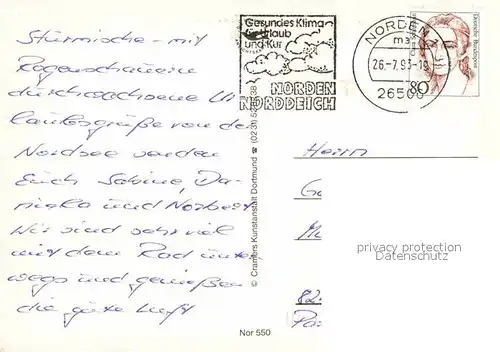 Stürmische - mit
Regenschauern
durchwachsene Ur
laubsgrüße von der
Nordsee senden
Euch Sabine, Da-
niela und Norbert
Wir sind sehr viel
mit dem Rad unter
wegs und genießen
die gute Luft
Gesundes Klima
für Urlaub
und Kur
NORDEN
NORDDEICH
NORDEN
ma
26.-7.93-19
26506
Deutsche Bundespost
80
© Cramers Kunstanstalt Dortmund ☎ (02 31)
Herrn
82
privacy protection
Datenschutz
Nor 550